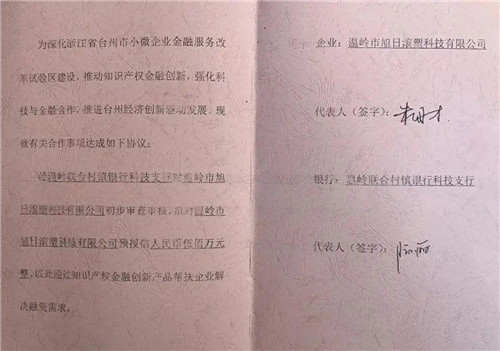 为深化浙江省台州市小微企业金融服务改
革试验区建设，推动知识产权金融创新，强化科
技与金融合作，推进台州经济创新驱动发展，现
就有关合作事项达成如下协议：
经温岭联合村镇银行科技支行对温岭市旭
日滚塑科技有限公司初步审查审核，拟对温岭市
旭日滚塑科技有限公司预授信人民币伍佰万元
整，以此通过知识产权金融创新产品帮扶企业解
决融资需求。
企业：温岭市旭日滚塑科技有限公司
代表人（签字）：
银行：温岭联合村镇银行科技支行
代表人（签字）：